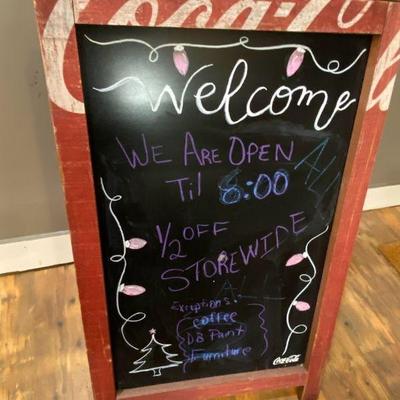 Coca-Co
Welcome
WE ARE OPEN
Til 8:00
ALL
1/2 OFF
STOREWIDE
ALL
Exceptions:
coffee
DB Paint
Furniture
Coca-Cola